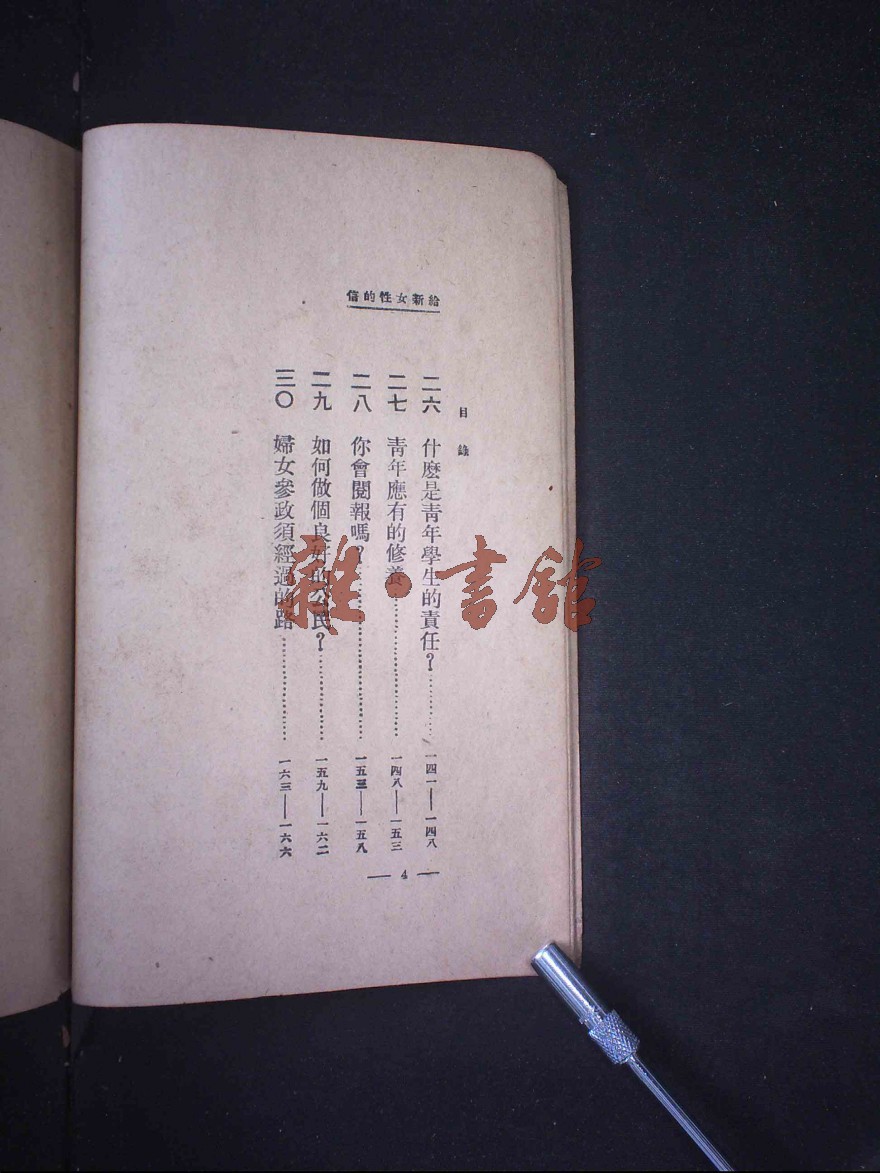 給新女性的信
目錄
二六 什麼是青年學生的責任?…………一四一——一四八
二七 青年應有的修養…………一四八——一五三
二八 你會閱報嗎?…………一五三——一五八
二九 如何做個良好的公民?…………一五九——一六二
三〇 婦女參政須經過的路…………一六三——一六六
— 4 —
雜·書館